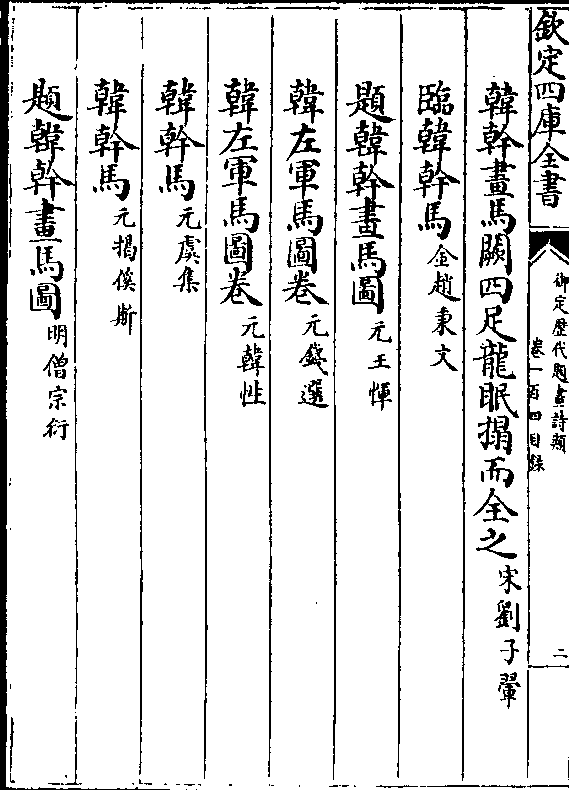 欽定四庫全書
御定歷代題畫詩類
卷一百四目錄
二
韓幹畫馬闕四足龍眠搨而全之宋劉子翬
臨韓幹馬金趙秉文
題韓幹畫馬圖元王惲
韓左軍馬圖卷元錢選
韓左軍馬圖卷元韓性
韓幹馬元虞集
韓幹馬元揭傒斯
題韓幹畫馬圖明僧宗衍